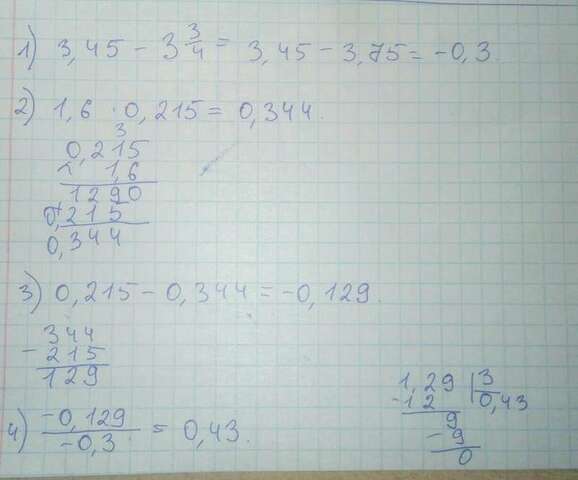 1) 3,45 - 3 3/4 = 3,45 - 3,75 = -0,3.
2) 1,6 · 0,215 = 0,344.
3
0,215
× 1,6
1290
+
0,215
0,344
3) 0,215 - 0,344 = -0,129.
344
- 215
129
4) -0,129 / -0,3 = 0,43.
1,29 | 3
-12 0,43
9
- 9
0